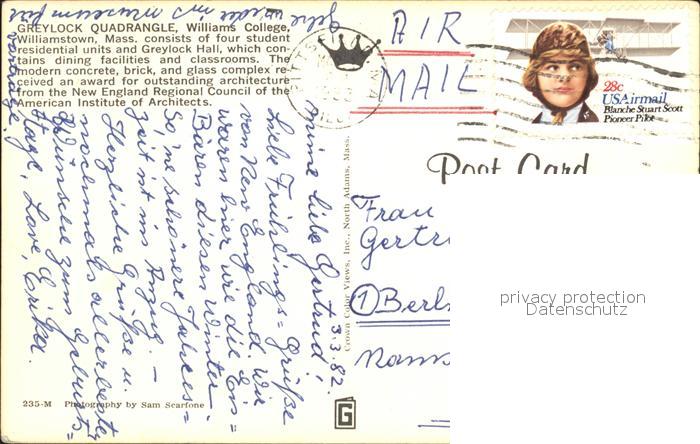 GREYLOCK QUADRANGLE, Williams College,
Williamstown, Mass. consists of four student
residential units and Greylock Hall, which con-
tains dining facilities and classrooms. The
modern concrete, brick, and glass complex re-
ceived an award for outstanding architecture
from the New England Regional Council of the
American Institute of Architects.
AIR
MAIL
28c
USAirmail
Blanche Stuart Scott
Pioneer Pilot
Post Card
3.3.82.
meine liebe Gertrud!
Liebe Frühlings=Grüße
von New England. Wir
waren hier wie die Eis=
Bären diesen Winter.
So, 'ne schönere Jahres=
zeit ist im Anzug. –
Herzliche Grüße u.
nochmals allerbeste
Wünsche zum Geburts=
tage, Love, Erika.
gehe wieder ins Museum für
Vorträge.
Crown Color Views, Inc., North Adams, Mass.
Frau
Gertr
1 Berl
privacy protection
Datenschutz
235-M Photography by Sam Scarfone
G